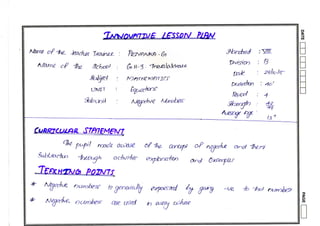 INNOVATIVE LESSON PLAN
Name of the Teacher Trainee : Standard : VIII
Name of the School : G.H.S. Division : B
Subject : MATHEMATICS Date :
Unit : Equations Duration : 40'
Subunit : Negative Numbers Period : 4
Strength :
Average Age :
13+
CURRICULAR STATEMENT
The pupil made aware of the concept of negative and there
Subtraction through activities explanation and Examples
TEACHING POINTS
* Negative numbers is generally expressed by giving -ve to that number
* Negative numbers are used in many
DATE
PAGE